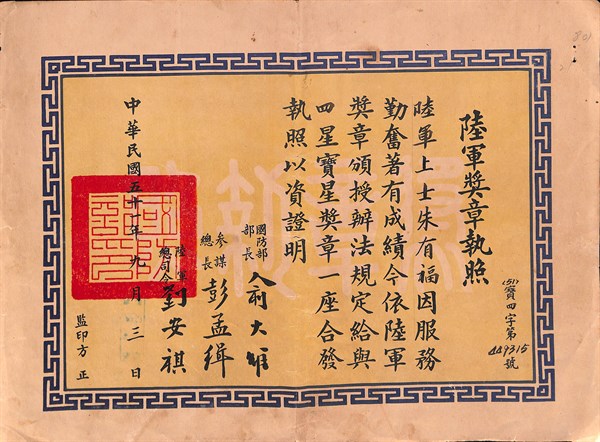 陸軍獎章執照
(51)寶四字第449315號
陸軍上士朱有福因服務
勤奮著有成績今依陸軍
獎章頒授辦法規定給與
四星寶星獎章一座合發
執照以資證明
國防部部長 俞大維
參謀總長 彭孟緝
陸軍總司令 劉安祺
中華民國五十一年九月三日
監印方正